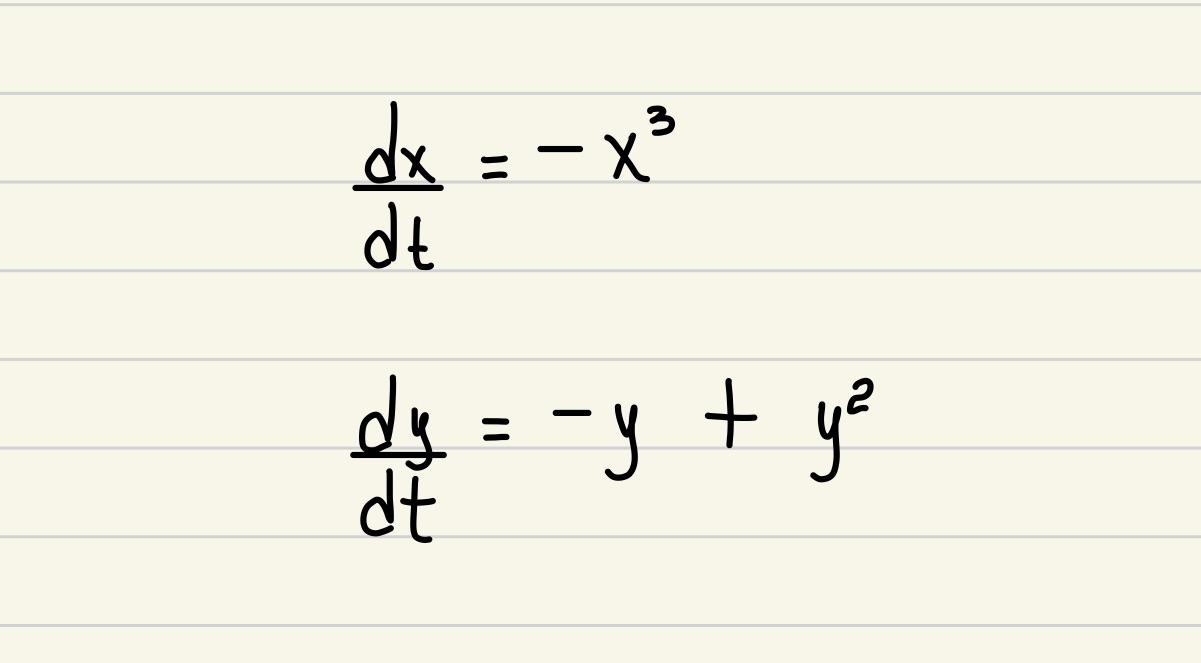 dx/dt = -x³
dy/dt = -y + y²